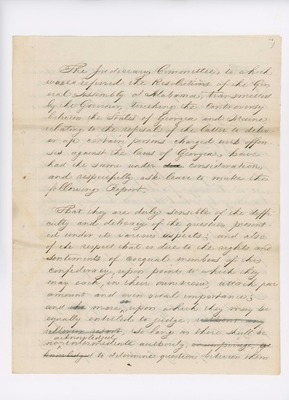 The Judiciary Committee, to which
was referred the Resolutions of the Gen
eral Assembly of Alabama, transmitted
by the Governor, touching the controversy
between the States of Georgia and Maine
relating to the refusal of the latter to deliv
er up certain persons charged with offen
ces against the laws of Georgia, have
had the same under consideration
and respectfully ask leave to make the
following Report.
That they are duly sensible of the diffi
culty and delicacy of the question present
ed under its various aspects; and also
of the respect that is due to the rights and
sentiments of coequal members of this
confederacy, upon points to which they
may each, in their own views, attach par
amount and even vital importance;
and upon which they may be
equally entitled to judge,
So long as there shall be
acknowledgedly
no intermediate authority,
to determine questions between them